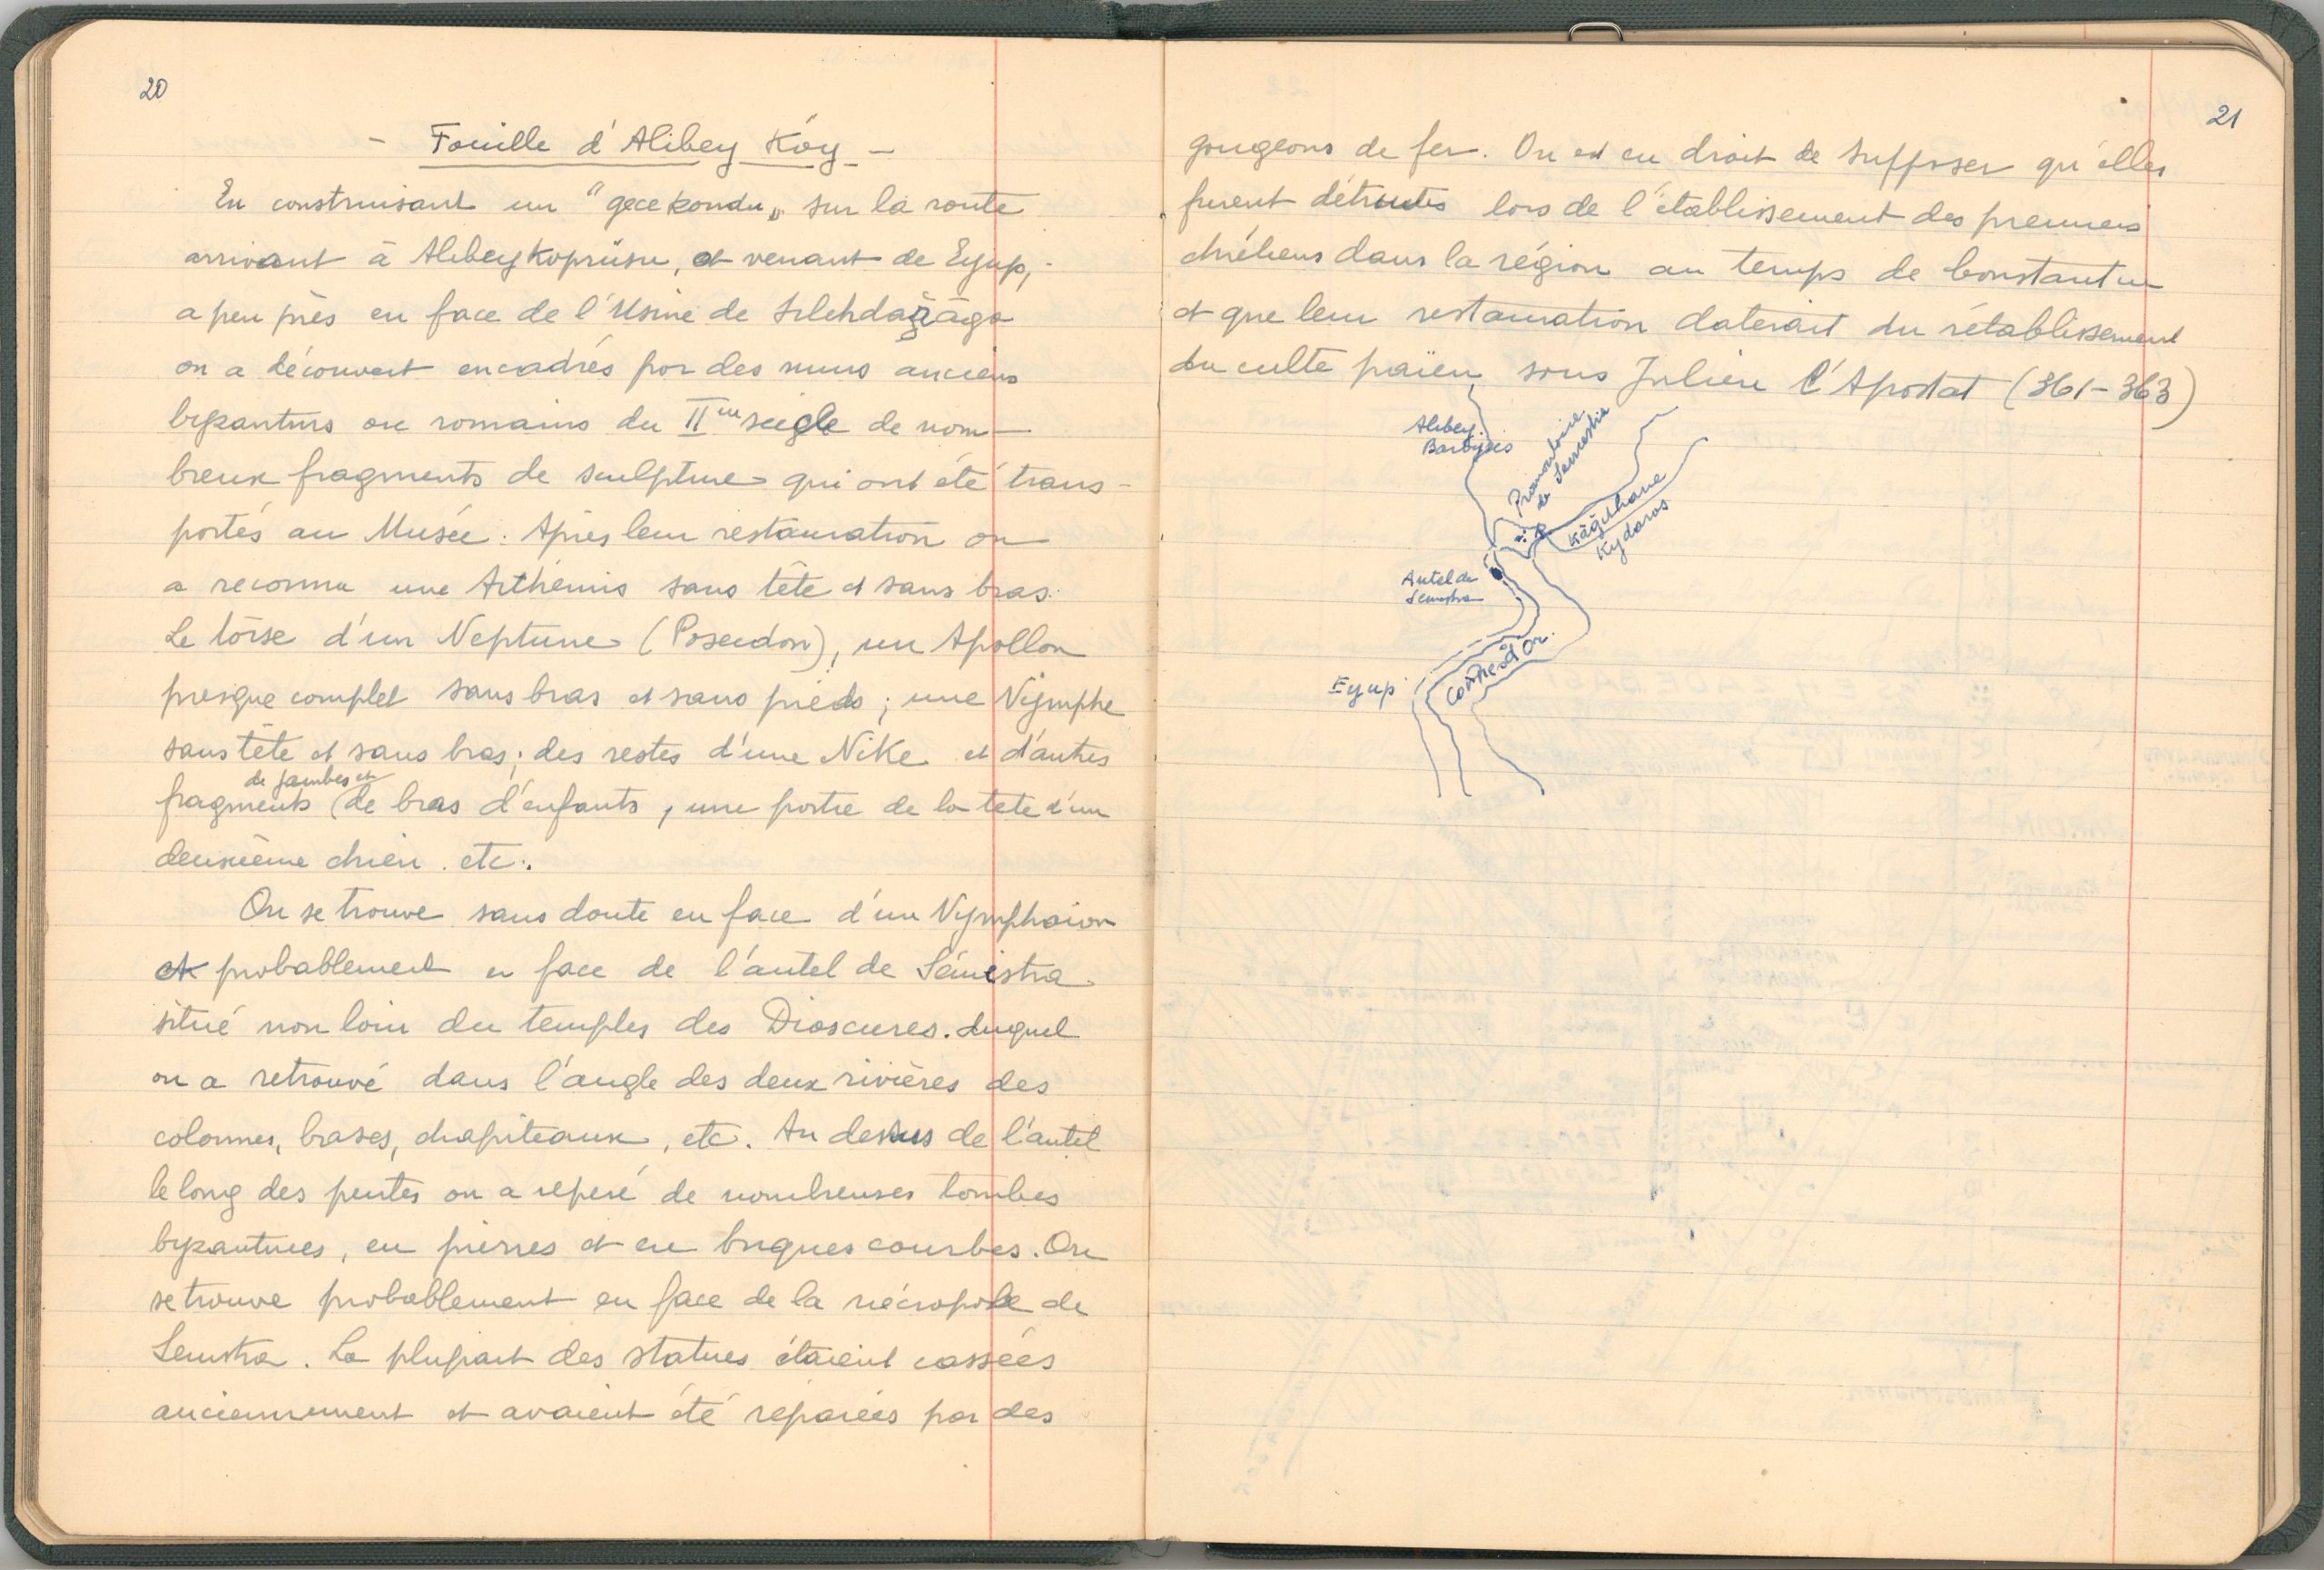 20
- Fouille d'Alibey Köy -
En construisant un "gecekondu" sur la route
arrivant à Alibeykoprüsu, et venant de Eyup,
a peu près en face de l'Usine de Silehdarăga
on a découvert encadrés par des murs anciens
byzantins ou romains du IIme siegle de nom-
breux fragments de sculptures qui ont été trans-
portés au Musée. Après leur restauration on
a reconnu une Arthémis sans tête et sans bras.
Le torse d'un Neptune (Poseidon), un Apollon
presque complet sans bras et sans pieds ; une Nymphe
sans tête et sans bras ; des restes d'une Nike et d'autres
de jambes et
fragments (de bras d'enfants, une partie de la tete d'un
deuxième chien. etc.
On se trouve sans doute en face d'un Nymphaion
et probablement en face de l'autel de Sémistra
situé non loin du temples des Dioscures. duquel
on a retrouvé dans l'angle des deux rivières des
colonnes, bases, chapiteaux, etc. Au dessus de l'autel
le long des pentes on a reperé de nombreuses tombes
byzantines, en pierres et en briques courbes. On
se trouve probablement en face de la nécropole de
Semistra. La plupart des statues étaient cassées
anciennement et avaient été réparées par des
21
gougeons de fer. On est en droit de supposer qu'elles
furent détruites lors de l'établissement des premiers
chrétiens dans la région au temps de Constantin
et que leur restauration daterait du rétablissement
du culte païen sous Julien l'Apostat (361-363)
Alibey.
Barbyses
Promontoire
de Semestria
Kâğithane
Kydaros
Autel de
Semestra
Corne d'Or.
Eyup